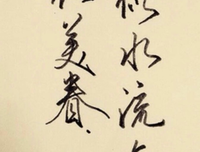 似水流
美眷